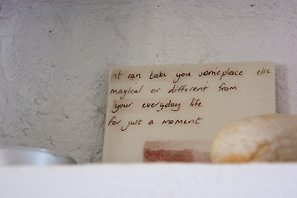 It can take you someplace else
magical or different from
your everyday life
for just a moment